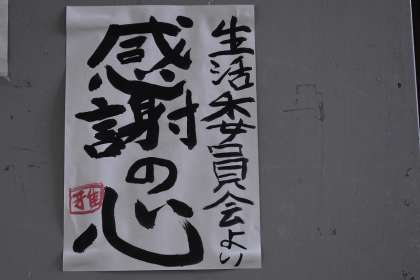 生活委員会より
感謝の心